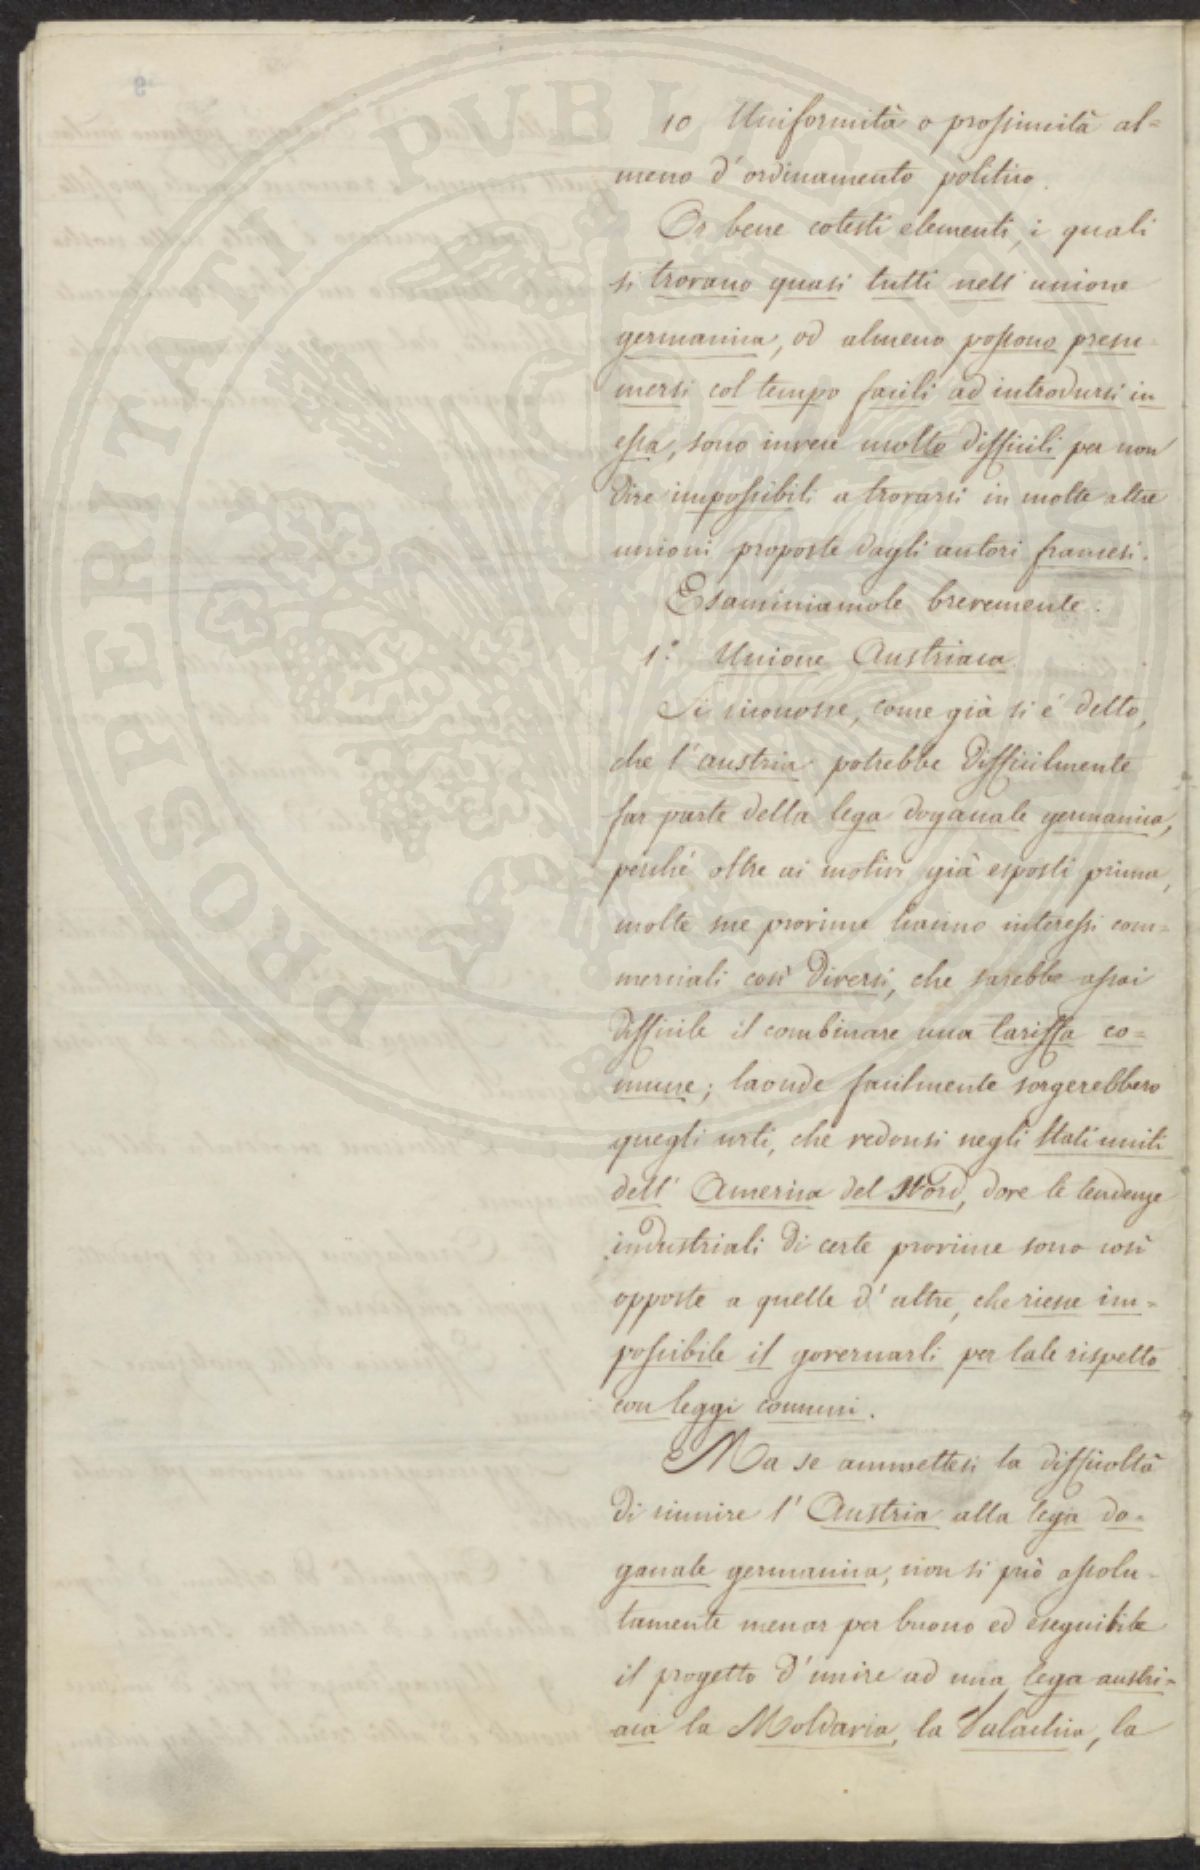 10 Uniformità o prossimità al=
meno d'ordinamento politico.
Or bene cotesti elementi, i quali
si trovano quasi tutti nell'unione
germanica, od almeno possono presu-
mersi col tempo facili ad introdursi in
essa, sono invece molto difficili per non
dire impossibili a trovarsi in molte altre
unioni proposte dagli autori francesi.
Esaminiamole brevemente.
1.° Unione Austriaca.
Si riconosce, come già si è detto,
che l'austria potrebbe difficilmente
far parte della lega doganale germanica,
perché oltre ai motivi già esposti prima,
molte sue provincie hanno interessi com=
merciali così diversi, che sarebbe assai
difficile il combinare una tariffa co=
mune; laonde facilmente sorgerebbero
quegli urti, che vedonsi negli Stati uniti
dell'America del Nord, dove le tendenze
industriali di certe provincie sono così
opposte a quelle d'altre, che riesce im=
possibile il governarli per tale rispetto
con leggi comuni.
Ma se ammettesi la difficoltà
di riunire l'Austria alla lega do=
ganale germanica, non si può assolu-
tamente menar per buono ed eseguibile
il progetto d'unire ad una lega austri=
aca la Moldavia, la Valachia, la
PROSPERITATI PUBLICAE